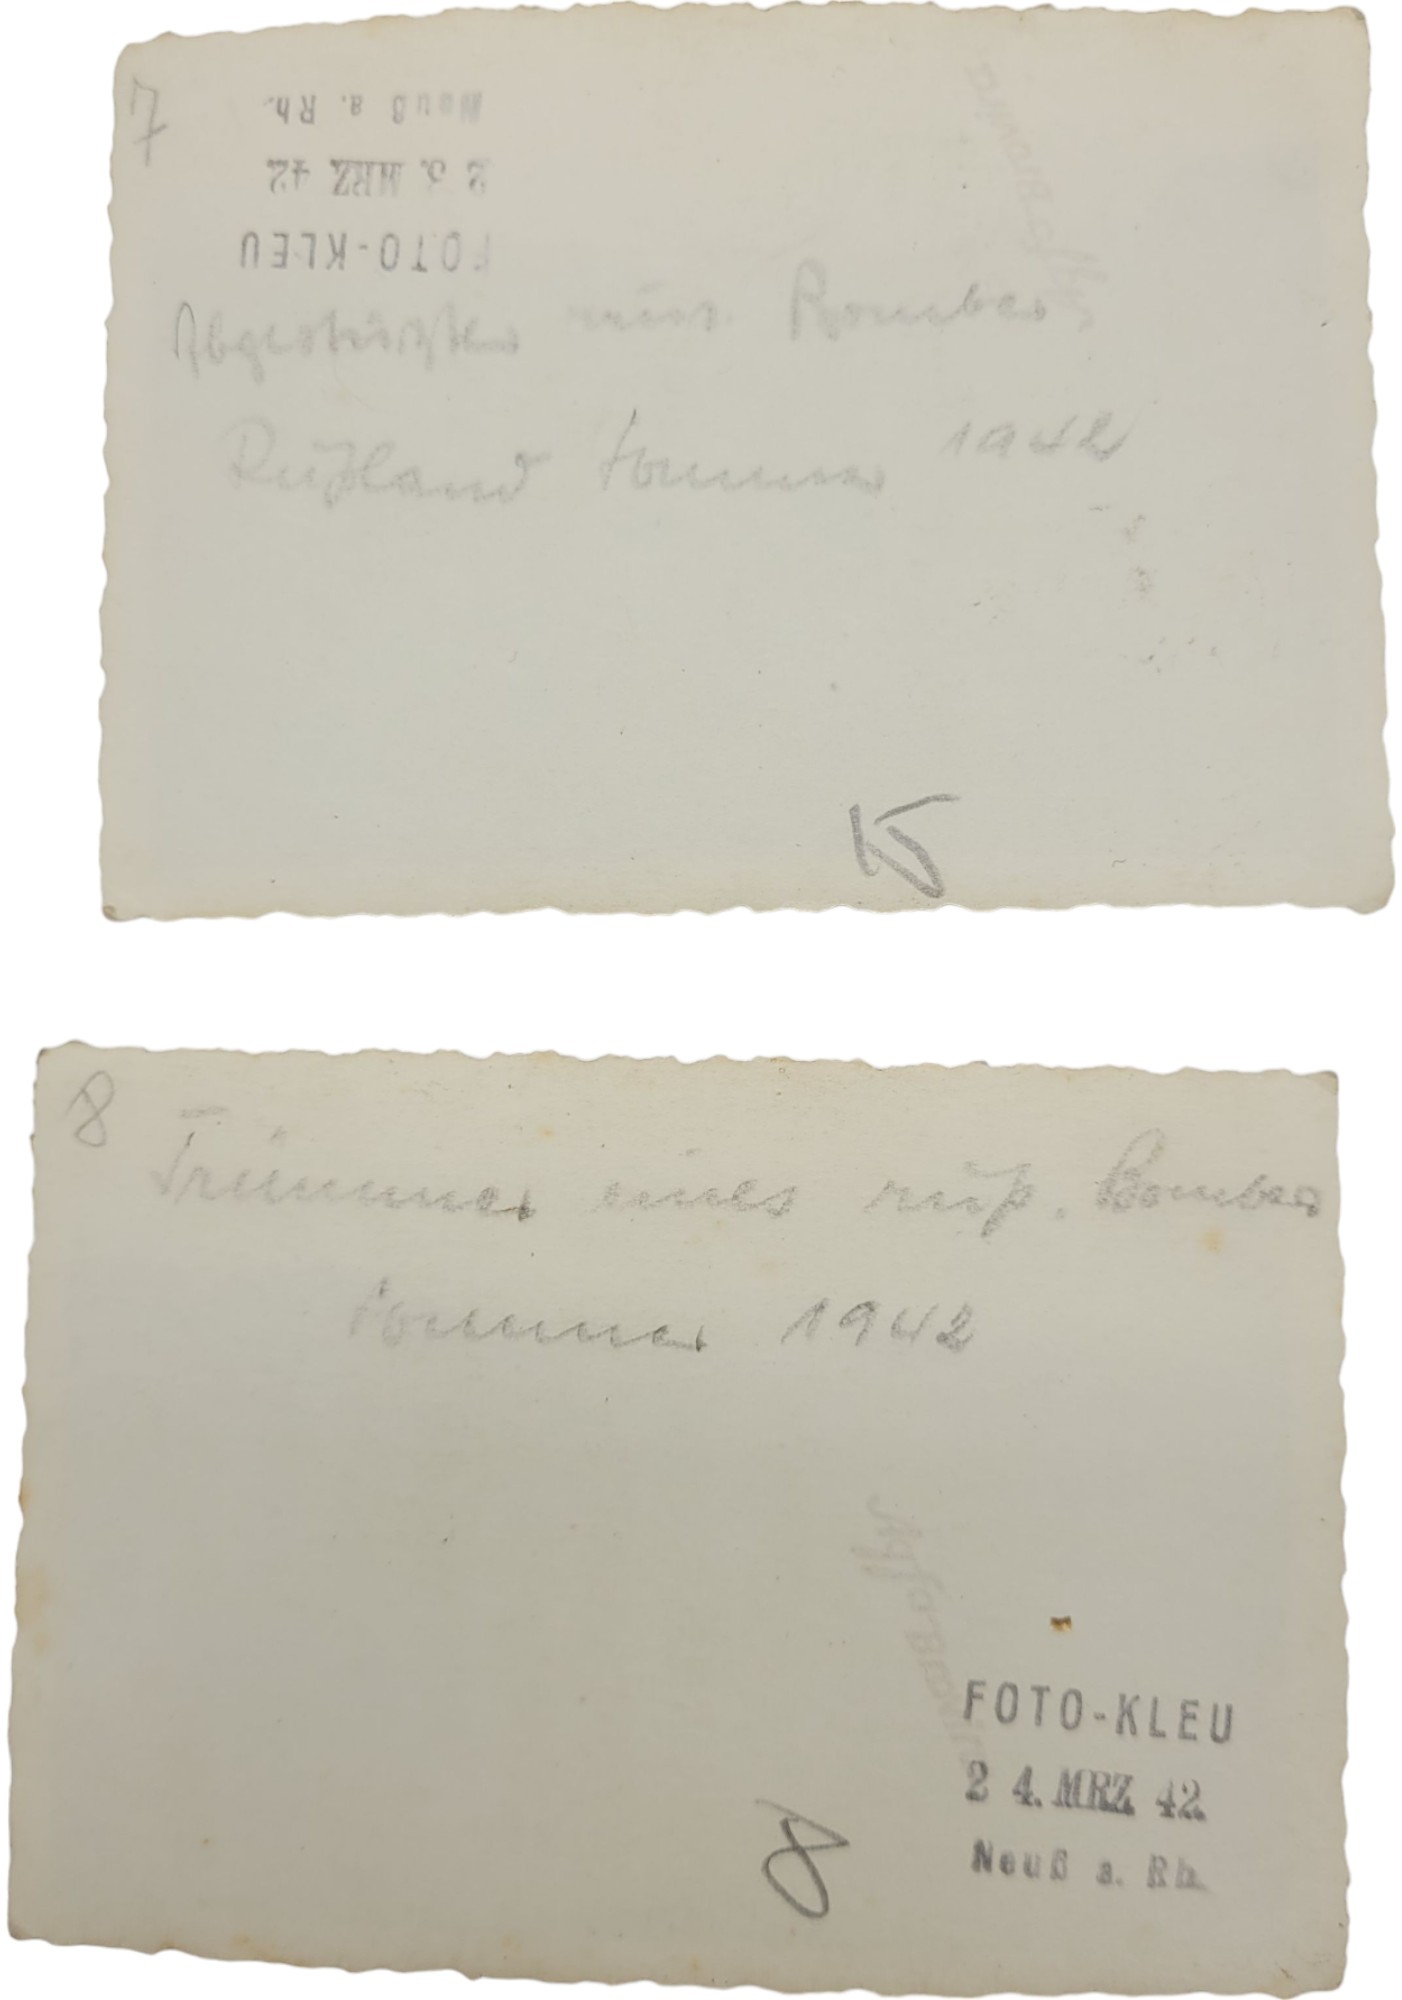 7
Neuß a. Rh.
2 5. MRZ 42
FOTO-KLEU
Abgestürzter russ. Bomber
Rußland Sommer 1942
8
Trümmer eines ruß. Bomber
Sommer 1942
FOTO-KLEU
2 4. MRZ 42
Neuß a. Rh.
8